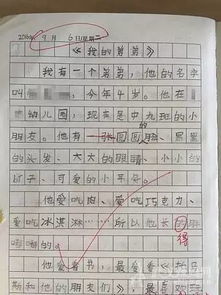 9月 6日星期二
《我的弟弟》
我有一个弟弟，他的名字
叫 ，今年4岁。他在
幼儿园，现在是中九班的小
朋友。他有一张圆圆的脸、黑黑
的头发、大大的眼睛、小小的
、可爱的小耳朵。
他爱吃肉、爱吃巧克力、
爱吃冰淇淋……所以他长
得
嘟嘟的。
他爱看书，最爱看《
斯和他的朋友们》，最